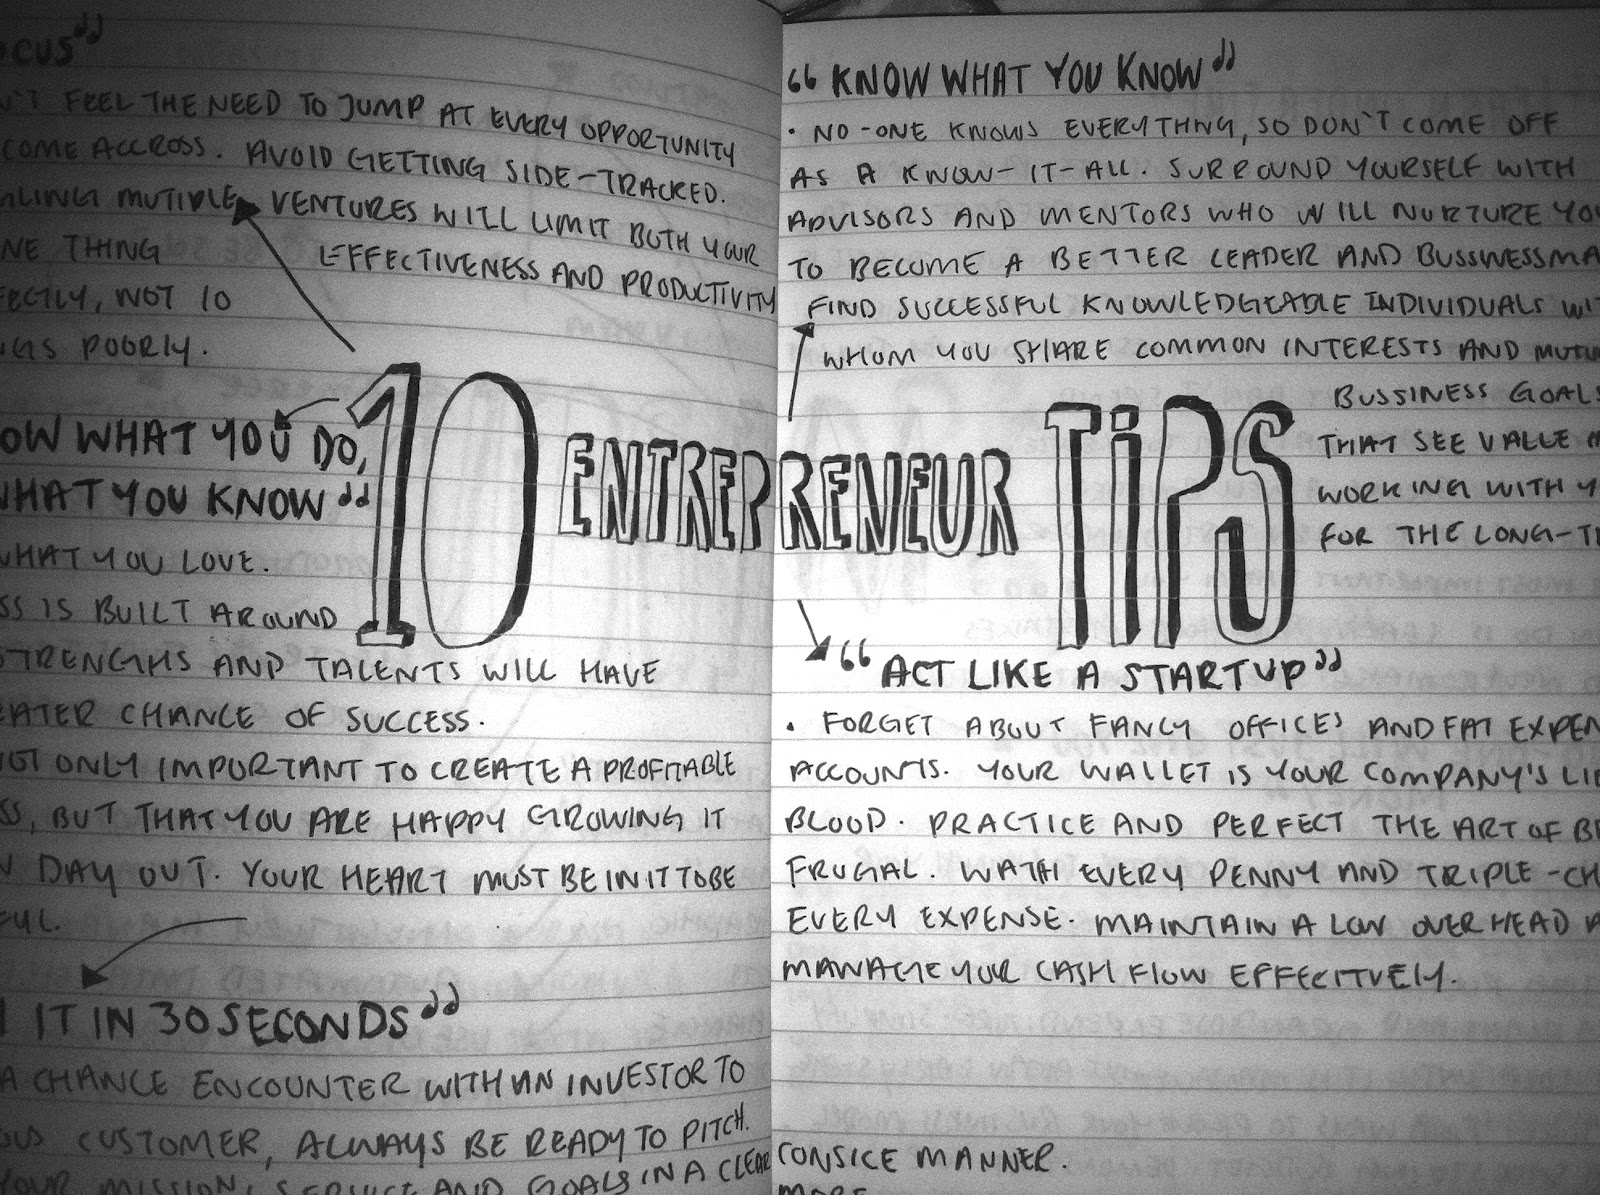 OCUS"
N'T FEEL THE NEED TO JUMP AT EVERY OPPORTUNITY
COME ACCROSS. AVOID GETTING SIDE-TRACKED.
GLING MUTIPLE VENTURES WILL LIMIT BOTH YOUR
NE THING EFFECTIVENESS AND PRODUCTIVITY
FECTLY, NOT 10
NGS POORLY.
10 ENTREPRENEUR TIPS
OW WHAT YOU DO,
WHAT YOU KNOW"
WHAT YOU LOVE.
SS IS BUILT AROUND
STRENGHS AND TALENTS WILL HAVE
EATER CHANCE OF SUCCESS.
NOT ONLY IMPORTANT TO CREATE A PROFITABLE
SS, BUT THAT YOU ARE HAPPY GROWING IT
N DAY OUT. YOUR HEART MUST BE IN IT TO BE
FUL.
IT IN 30 SECONDS"
A CHANCE ENCOUNTER WITH AN INVESTOR TO
OUS CUSTOMER, ALWAYS BE READY TO PITCH.
YOUR MISSION, SERVICE AND GOALS IN A CLEAR
"KNOW WHAT YOU KNOW"
· NO-ONE KNOWS EVERYTHING, SO DON'T COME OFF
AS A KNOW-IT-ALL. SURROUND YOURSELF WITH
ADVISORS AND MENTORS WHO WILL NURTURE YOU
TO BECOME A BETTER LEADER AND BUSSWESSMA
FIND SUCCESSFUL KNOWLEDGEABLE INDIVIDUALS WIT
WHOM YOU SHARE COMMON INTERESTS AND MUTU
BUSSINESS GOALS
THAT SEE VALUE
WORKING WITH Y
FOR THE LONG-T
"ACT LIKE A STARTUP"
· FORGET ABOUT FANCY OFFICES AND FAT EXPEN
ACCOUNTS. YOUR WALLET IS YOUR COMPANY'S LI
BLOOD. PRACTICE AND PERFECT THE ART OF B
FRUGAL. WATH EVERY PENNY AND TRIPLE-CH
EVERY EXPENSE. MAINTAIN A LOW OVERHEAD A
MANAGE YOUR CASH FLOW EFFECITVELY.
CONSICE MANNER.
MORE